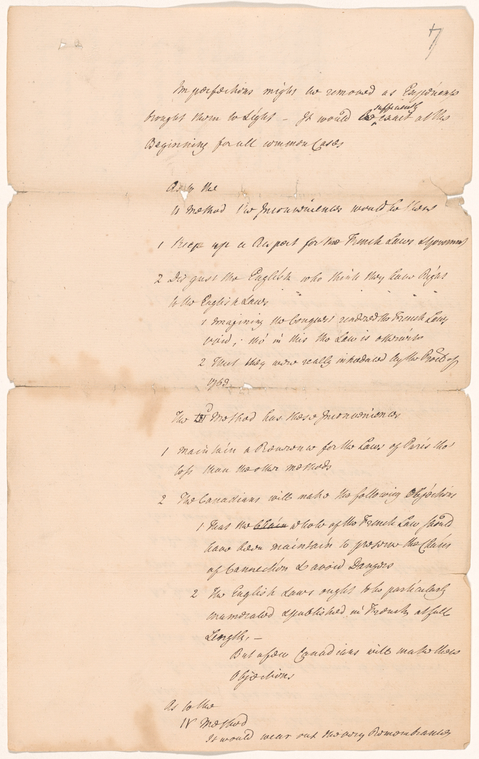 Imperfections might be removed as Experience
brought them to Light – It would be sufficiently exact at the
Beginning for all common Cases
As to the
II Method the Inconveniences would be these
1 Keep up a Respect for the French Laws & Governmt
2 Disgust the English who think they have Right
to the English Laws
1 imagining the Conquest rendered the French Laws
void, tho' in this the Law is otherwise
2 That they were really introduced by the Procl. of
1763
The III Method has these Inconveniences
1 maintain a Reverence for the Laws of Paris tho
less than the other methods
2 The Canadians will make the following Objections
1 that the whole of the French Law should
have been maintain to preserve the
of Connection & avoid Dangers
2 The English Laws ought to be particularly
enumerated & published in French at full
Length, –
But a few Canadians will make these
Objections
As to the
IV Method
It would wear out the very Remembrance